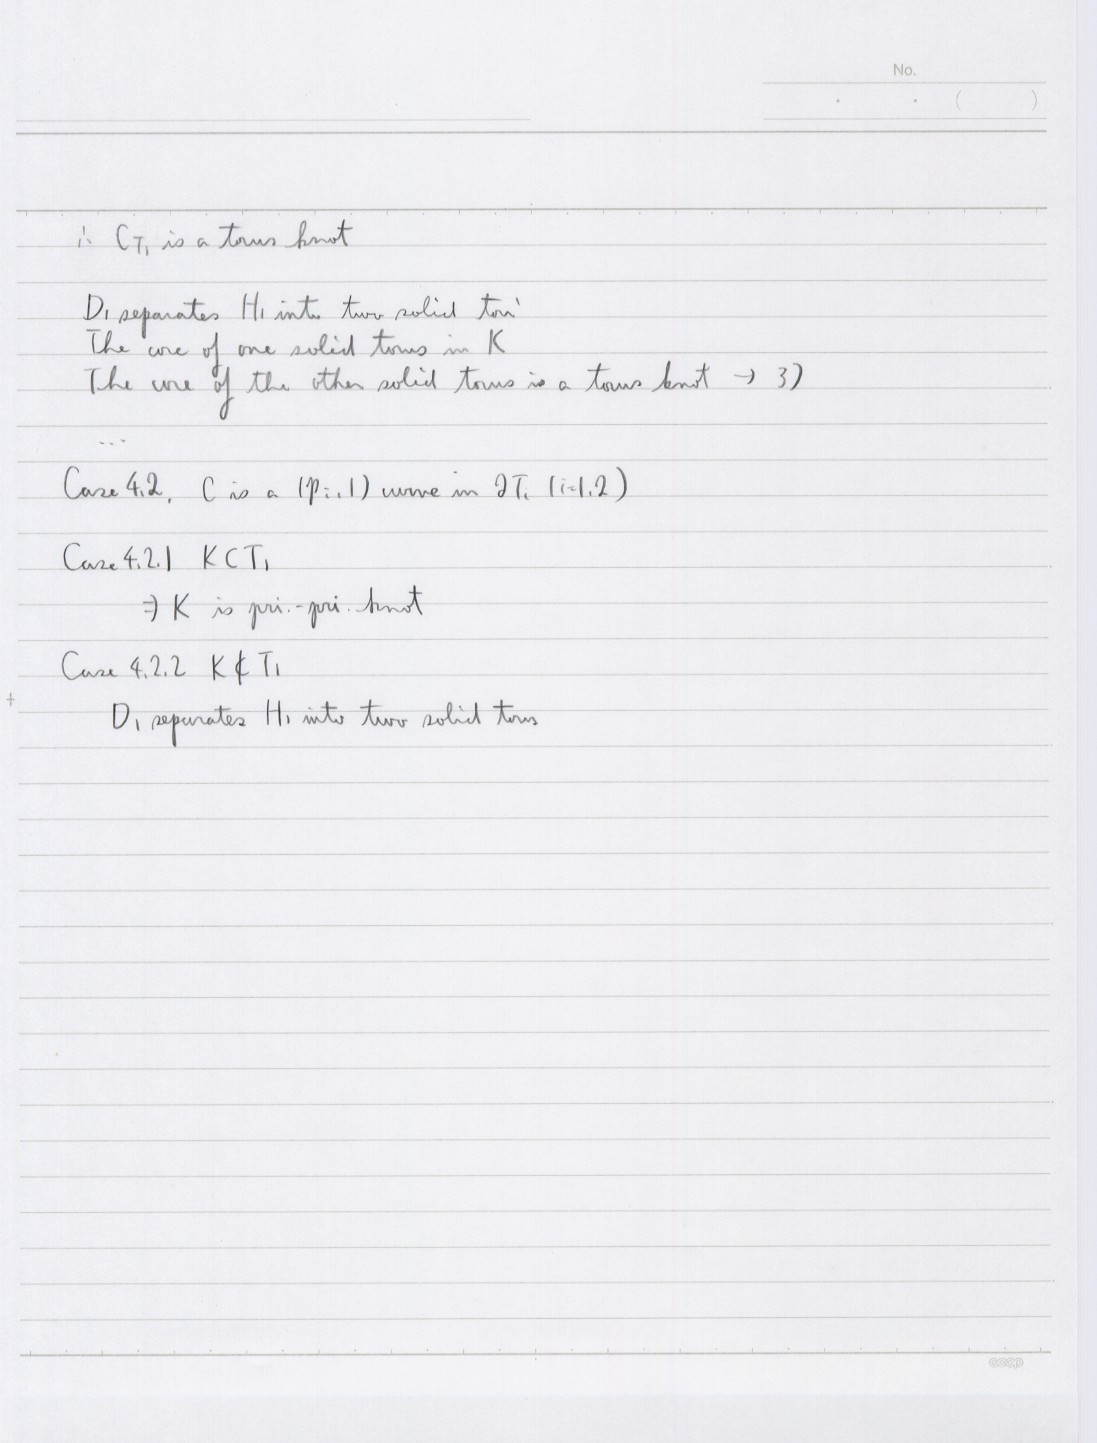 No.
( )
∴ C_{T_1} is a torus knot
D_1 separates H_1 into two solid tori
The core of one solid torus in K
The core of the other solid torus is a torus knot → 3)
...
Case 4.2. C is a (p_i, 1) curve in ∂T_i (i=1.2)
Case 4.2.1 K ⊂ T_1
⇒ K is pri.-pri. knot
Case 4.2.2 K ⊄ T_1
D_1 separates H_1 into two solid torus
coop